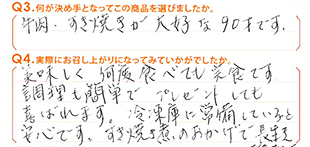 Q3.何が決め手となってこの商品を選びましたか。
牛肉、すき焼きが大好な90才です。
Q4.実際にお召し上がりになってみていかがでしたか。
美味しく何度食べても完食です
調理も簡単で プレゼントしても
喜ばれます。冷凍庫に常備していると
安心です。すき焼き煮のおかげで長生き